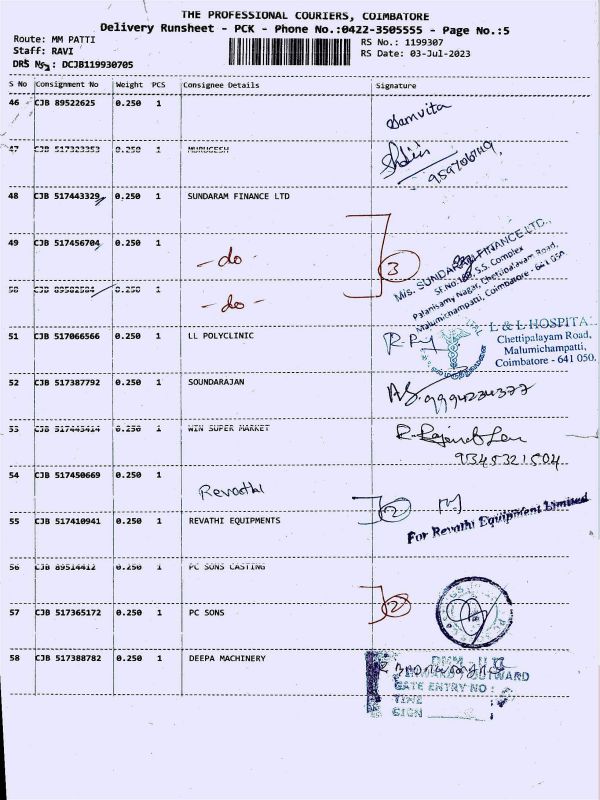 THE PROFESSIONAL COURIERS, COIMBATORE
Delivery Runsheet - PCK - Phone No.:0422-3505555 - Page No.:5
Route: MM PATTI
RS No.: 1199307
Staff: RAVI
RS Date: 03-Jul-2023
DRS No.: DCJB119930705
S No Consignment No Weight PCS Consignee Details Signature
46 CJB 89522625 0.250 1 Samvita
47 CJB 517323353 0.250 1 MURUGESH
48 CJB 517443329 0.250 1 SUNDARAM FINANCE LTD
49 CJB 517456704 0.250 1
- do - 3
M/s. SUNDARAM FINANCE LTD.,
S.S. Complex
Palanisamy Nagar, Chettipalayam Road,
Malumichampatti, Coimbatore - 641 050
50 CJB 89502584 0.250 1
- do -
51 CJB 517066566 0.250 1 LL POLYCLINIC
L & L HOSPITAL
Chettipalayam Road,
Malumichampatti,
Coimbatore - 641 050.
52 CJB 517387792 0.250 1 SOUNDARAJAN 9994234377
53 CJB 517445414 0.250 1 WIN SUPER MARKET
9345321504
54 CJB 517450669 0.250 1
Revathi 2
For Revathi Equipment Limited
55 CJB 517410941 0.250 1 REVATHI EQUIPMENTS
56 CJB 89514412 0.250 1 PC SONS CASTING
2
57 CJB 517365172 0.250 1 PC SONS
58 CJB 517388782 0.250 1 DEEPA MACHINERY
INWARD / OUTWARD
GATE ENTRY NO :
TIME
SIGN